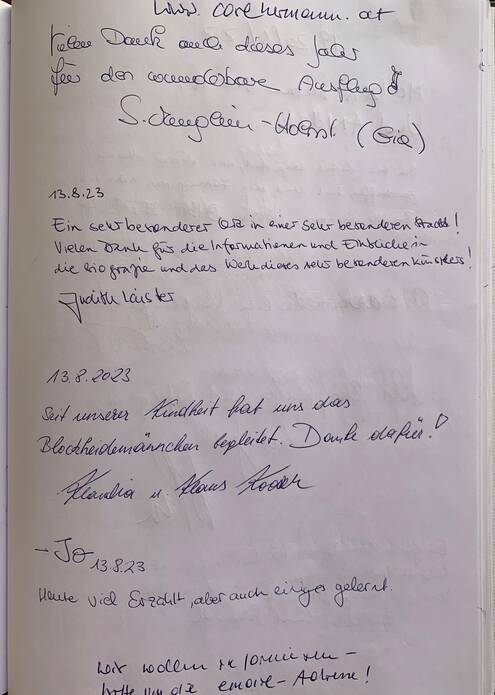 www. carlhermann. at
Vielen Dank auch dieses Jahr
für den wunderbare Ausflug
S. (Gia)
13.8.23
Ein sehr besonderer Ort in einer sehr besonderen Stadt!
Vielen Dank für die Informationen und Einblicke in
die Biografie und das Werk dieses sehr besonderen Künstlers!
Judith Laister
13.8.2023
Seit unserer Kindheit hat uns das
Blockheidemännchen begleitet. Danke dafür!
Klaudia u. Klaus
- Jo 13.8.23
Heute viel Erzählt, aber auch einiges gelernt.
Wir wollen
bitte um die Adresse!